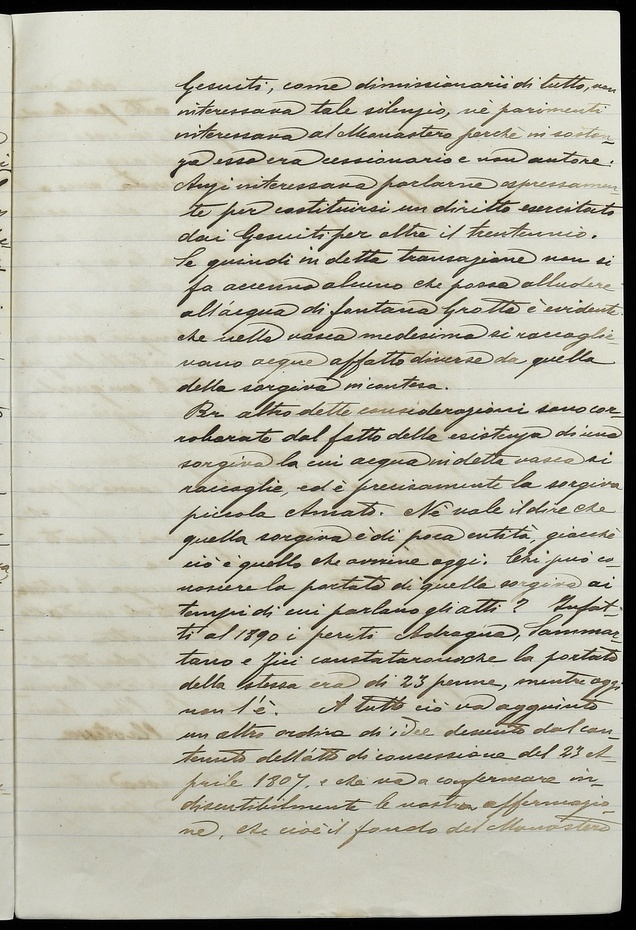 Gesuiti, come dimissionarii di tutto, non
interessava tale silenzio, nè parimenti
interessava al Monastero perchè in sostan-
za esso era cessionario e non autore.
Anzi interessava parlarne espressamen-
te per costituirsi un diritto esercitato
dai Gesuiti per oltre il trentennio.
Se quindi in detta transazione non si
fa accenno alcuno che possa alludere
all'acqua di fontana Grotta è evidente
che nella vasca medesima si raccoglie-
vano acque affatto diverse da quella
della sorgiva in contesa.
Per altro dette considerazioni sono cor-
roborate dal fatto della esistenza di una
sorgiva la cui acqua in detta vasca si
raccoglie, ed è precisamente la sorgiva
piccola Amato. Nè vale il dire che
quella sorgiva è di poca entità, giacchè
ciò è quello che avviene oggi. Chi può co-
noscere la portata di quella sorgiva ai
tempi di cui parlano gli atti? Infat-
ti al 1890 i periti Adragna, Sammar-
tano e Fici constatarono che la portata
della stessa era di 23 penne, mentre oggi
non l'è. A tutto ciò va aggiunto
un altro ordine di idee desunto dal con-
tenuto dell'atto di concessione del 23 A-
prile 1807, e che va a confermare in-
discutibilmente la nostra affermazio-
ne, che cioè il fondo del Monastero